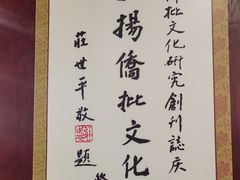 批文化研究創刊誌庆
揚僑批文化
莊世平敬題